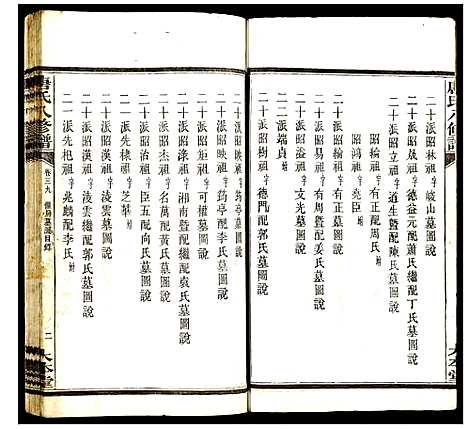 唐氏八修譜
二十派昭林祖字峻山墓圖說
二十派昭德祖字益元配蕭氏繼配丁氏墓圖說
二十派昭立祖字道生暨配陳氏墓圖說
昭輪祖字有正配周氏
昭鴻祖字堯臣
二十派昭福祖字有正墓圖說
二十派昭易祖字有周暨配姜氏墓圖說
二十派昭祖字文光墓圖說
二十派昭端貞
二十派昭樹祖字德門配郭氏墓圖說
唐氏八修譜
卷三九
墓圖目錄
二
大本堂
二十派昭映祖字筠亭墓圖說
二十派昭映祖字筠亭繼配氏墓圖說
二十派昭矩祖字可權墓圖說
二十派昭淥祖字湘南暨配繼配袁氏墓圖說
二十派昭杰祖字名萬配黃氏墓圖說
二十派昭治祖字臣五配向氏墓圖說
二十一派先棣祖字芝
二十派昭漢祖字淩雲墓圖說
二十派昭漢祖字淩雲繼配郭氏墓圖說
二十一派先杞祖字兆麟配李氏